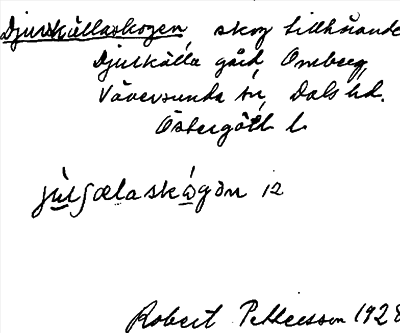 Djurkällaskogen, skog tillhörande
Djurkälla gård, Omberg,
Väversunda sn, Dals hd.
Östergötl. l.
Robert Pettersson 1928